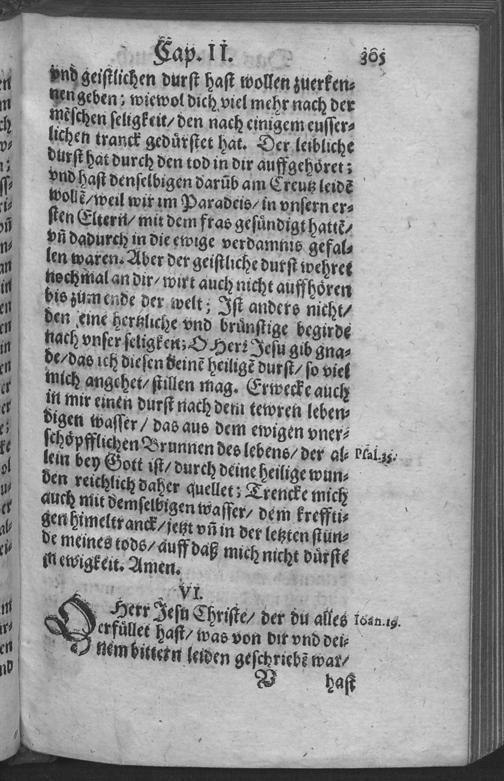 Cap. II. 305
vnd geistlichen durst hast wollen zuerken-
nen geben; wiewol dich viel mehr nach der
mẽschen seligkeit/ den nach einigem eusser-
lichen tranck gedürstet hat. Der leibliche
durst hat durch den tod in dir auffgehöret;
vnd hast denselbigen darüb am Creutz leidẽ
wollẽ/ weil wir im Paradeis/ in vnsern er-
sten Eltern/ mit dem fras gesündigt hattẽ/
vñ dadurch in die ewige verdamnis gefal-
len waren. Aber der geistliche durst wehret
nochmal an dir/ wirt auch nicht auffhören
bis zum ende der welt; Ist anders nicht/
den eine hertzliche vnd brünstige begirde
nach vnser seligkeit; O Herr Jesu gib gna-
de/ das ich diesen deinẽ heiligẽ durst/ so viel
mich angehet/ stillen mag. Erwecke auch
in mir einen durst nach dem tewren leben-
digen wasser/ das aus dem ewigen vner-
schöpfflichen Brunnen des lebens/ der al- Psal.35.
lein bey Gott ist/ durch deine heilige wun-
den reichlich daher quellet; Trencke mich
auch mit demselbigen wasser/ dem kreffti-
gen himeltranck/ jetzt vñ in der letzten stün-
de meines tods/ auff daß mich nicht dürste
in ewigkeit. Amen.
VI.
O Herr Jesu Christe/ der du alles Ioan.19.
erfüllet hast/ was von dir vnd dei-
nem bittern leiden geschriebẽ war/
V hast